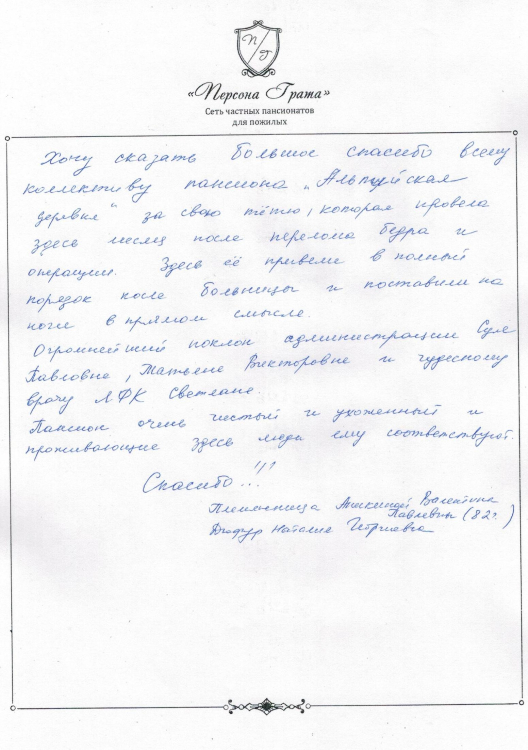 П/Г
«Персона Грата»
Сеть частных пансионатов
для пожилых
Хочу сказать большое спасибо всему
коллективу пансиона „Альпийская
деревня" за свою тётю, которая провела
здесь месяц после перелома бедра и
операции. Здесь её привели в полный
порядок после больницы и поставили на
ноги в прямом смысле.
Огромнейший поклон администрации
Павловне, Татьяне Викторовне и чудесному
врачу ЛФК Светлане.
Пансион очень чистый и ухоженный и
проживающие здесь люди ему соответствуют.
Спасибо!!!
Племянница Валентины
Павловны (82г.)
Наталия